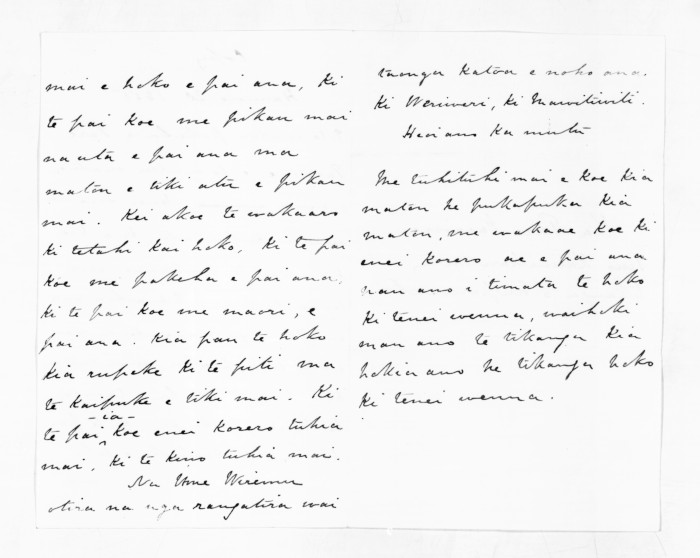 mai e hoko e pai ana, Ki
te pai koe me pikau mai
na uta e pai ana ma
matou e tiki atu e pikau
mai. Kei akoe te wakaaro
ki tetahi kai hoko. Ki te pai
koe me pakeha e pai ana,
ki te pai koe me maori, e
pai ana. Kia pau te hoko
kia rupeke ki te piti ma
te kaipuke e tiki mai. Ki
te pai -ia- koe enei korero tuhia
mai, ki te kino tuhia mai.
Na Wiremu
otira na nga rangatira wai
taonga katoa e noho ana.
Ki Weriweri, ki Mawitiwiti.
Heoi ano ka mutu
Me tuhituhi mai e koe kia
matou he pukapuka kia
matou, me wakaae koe ki
enei korero ae e pai ana
nau ano i timata te hoko
ki tenei wenua, waihoki
mau ano te tikanga kia
hokia ano he tikanga hoko
ki tenei wenua.